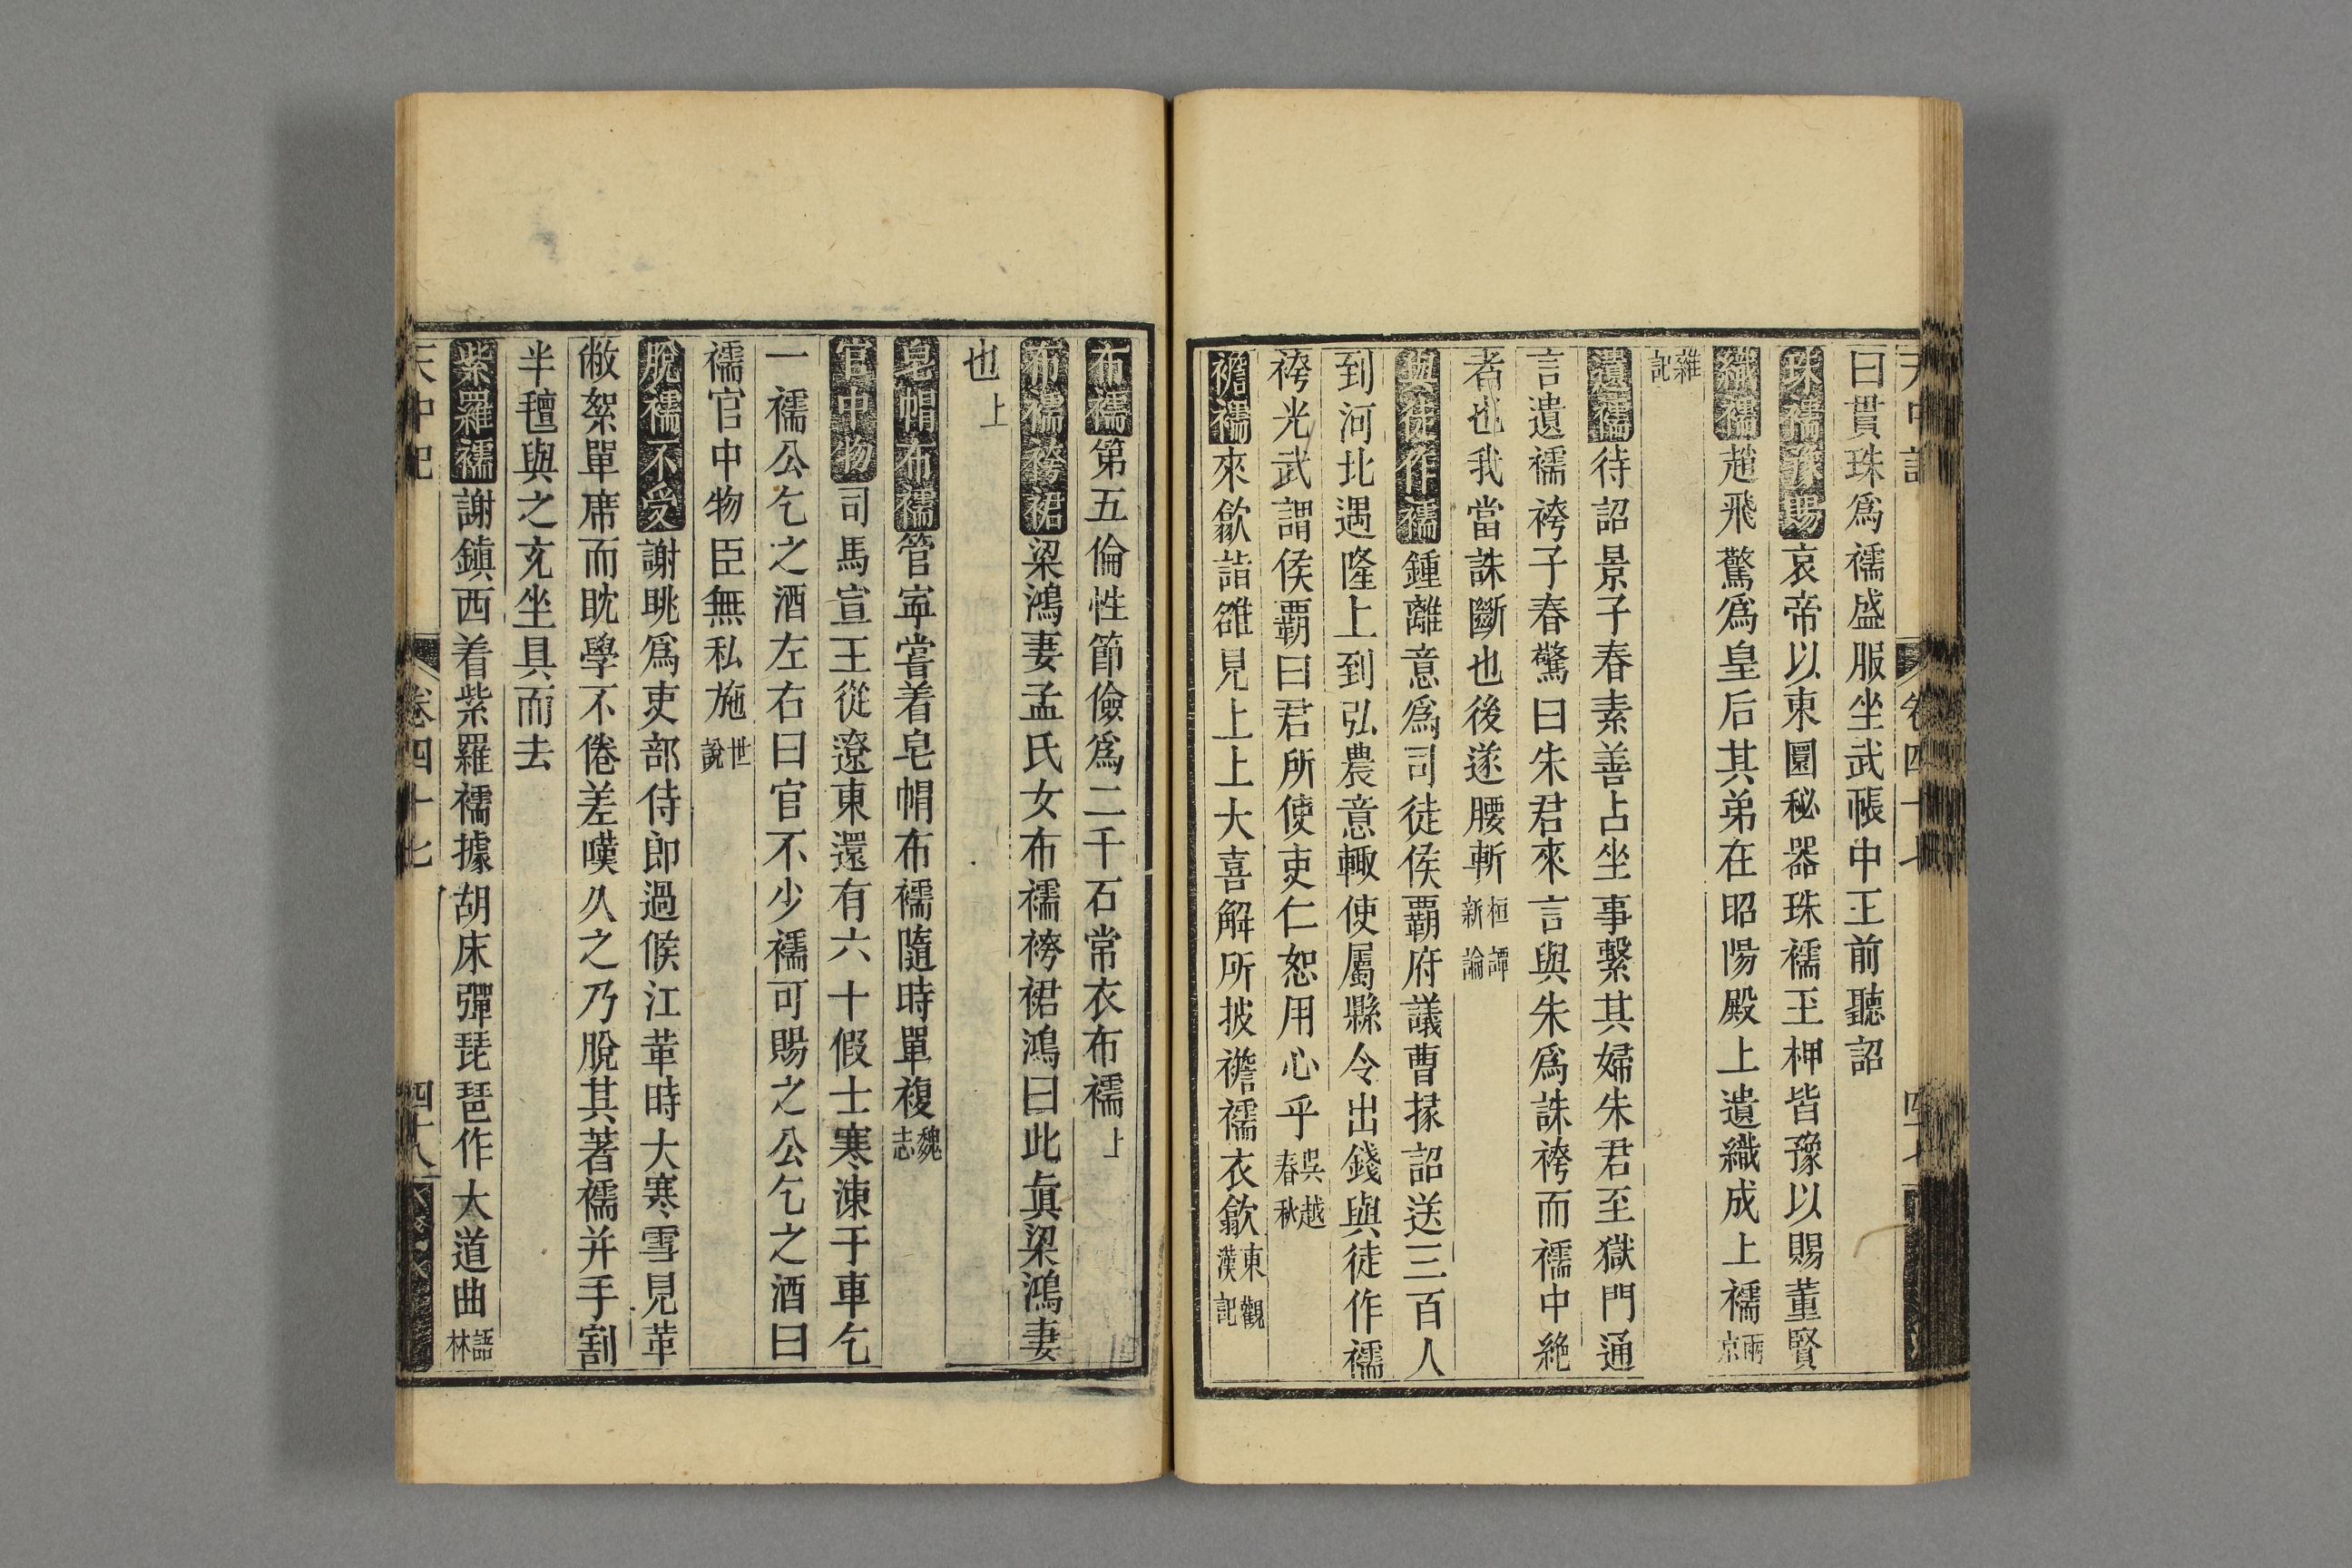 天中記 卷四十七
曰貫珠爲襦盛服坐武帳中王前聽詔
珠襦豫賜哀帝以東園秘器珠襦玉柙皆豫以賜董賢
織襦趙飛驚爲皇后其弟在昭陽殿上遺織成上襦兩京
雜記
遺襦待詔景子春素善占坐事繫其婦朱君至獄門通
言遺襦袴子春驚曰朱君來言與朱爲誅袴而襦中絶
者也我當誅斷也後遂腰斬桓譚新論
與徒作襦鍾離意爲司徒侯覇府議曹掾詔送三百人
到河北遇隆上到弘農意輙使屬縣令出錢與徒作襦
袴光武謂侯覇曰君所使吏仁恕用心乎吳越春秋
襜襦來歙詣雒見上上大喜解所披襜襦衣歙東觀漢記
布襦第五倫性節儉爲二千石常衣布襦上
布襦袴裙梁鴻妻孟氏女布襦袴裙鴻曰此眞梁鴻妻
也上
皂帽布襦管寧嘗着皂帽布襦隨時單複魏志
官中物司馬宣王從遼東還有六十假士寒凍于車乞
一襦公乞之酒左右曰官不少襦可賜之公乞之酒曰
襦官中物臣無私施世說
脫襦不受謝眺爲吏部侍郎過候江革時大寒雪見革
敝絮單席而眈學不倦差嘆久之乃脫其著襦并手割
半氊與之充坐具而去
紫羅襦謝鎮西着紫羅襦據胡床彈琵琶作大道曲語林
天中記 卷四十七 四十八